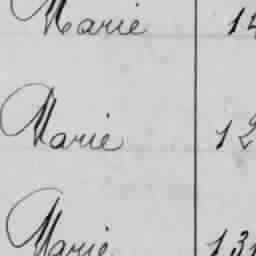 Marie 14
Marie 12
Marie 131